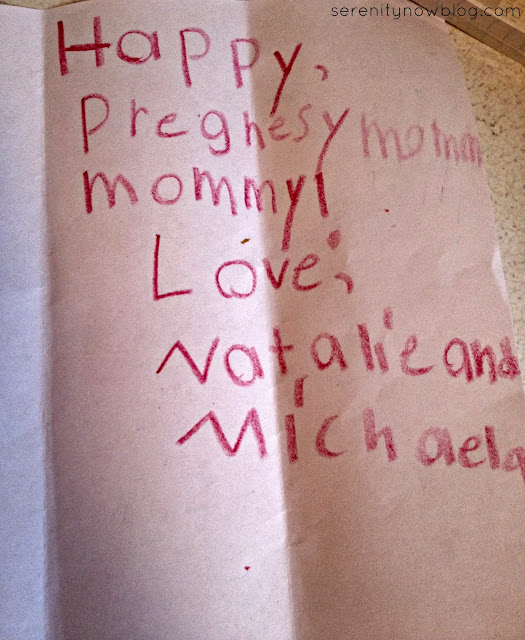 serenitynowblog.com
Happy,
Preghesy momm
mommy!
Love,
Natalie and
Michaela